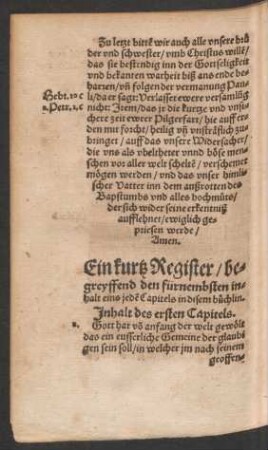 Zu letzt bittē wir auch alle vnsere brü
der vnd schwester/ vmb Christus willē/
das sie bestendig inn der Gottseligkeit
vnd bekanten warheit biß ans ende be
harren/ vñ folgen der vermanung Pau
Hebr. 10 c li/ da er sagt: Verlasset ewere versamlūg
1. Petr. 1. c nicht: Item/ das jr die kurtze vnd vnsi-
chere zeit ewrer Pilgerfart/ hie auff er
den mit forcht/ heilig vñ vnsträflich zu-
bringet/ auff das vnsere Widersacher/
die vns als vbeltheter vnnd böse men-
schen vor aller welt scheltē/ verschemet
mögen werden/ vnd das vnser himli-
scher Vatter inn dem außrotten des
Bapstumbs vnd alles hochmüts/
der sich wider seine erkentnuß
aufflehnet/ ewiglich ge-
priesen werde/
Amen.
Ein kurtz Register/ be-
greyffend den fürnembsten in-
halt eins jedē Capitels in disem büchlin.
Inhalt des ersten Capitels.
1. Gott hat vō anfang der welt gewölt
das ein eusserliche Gemeine der glaubi
gen sein soll/ in welcher jm nach seinem
groffen-